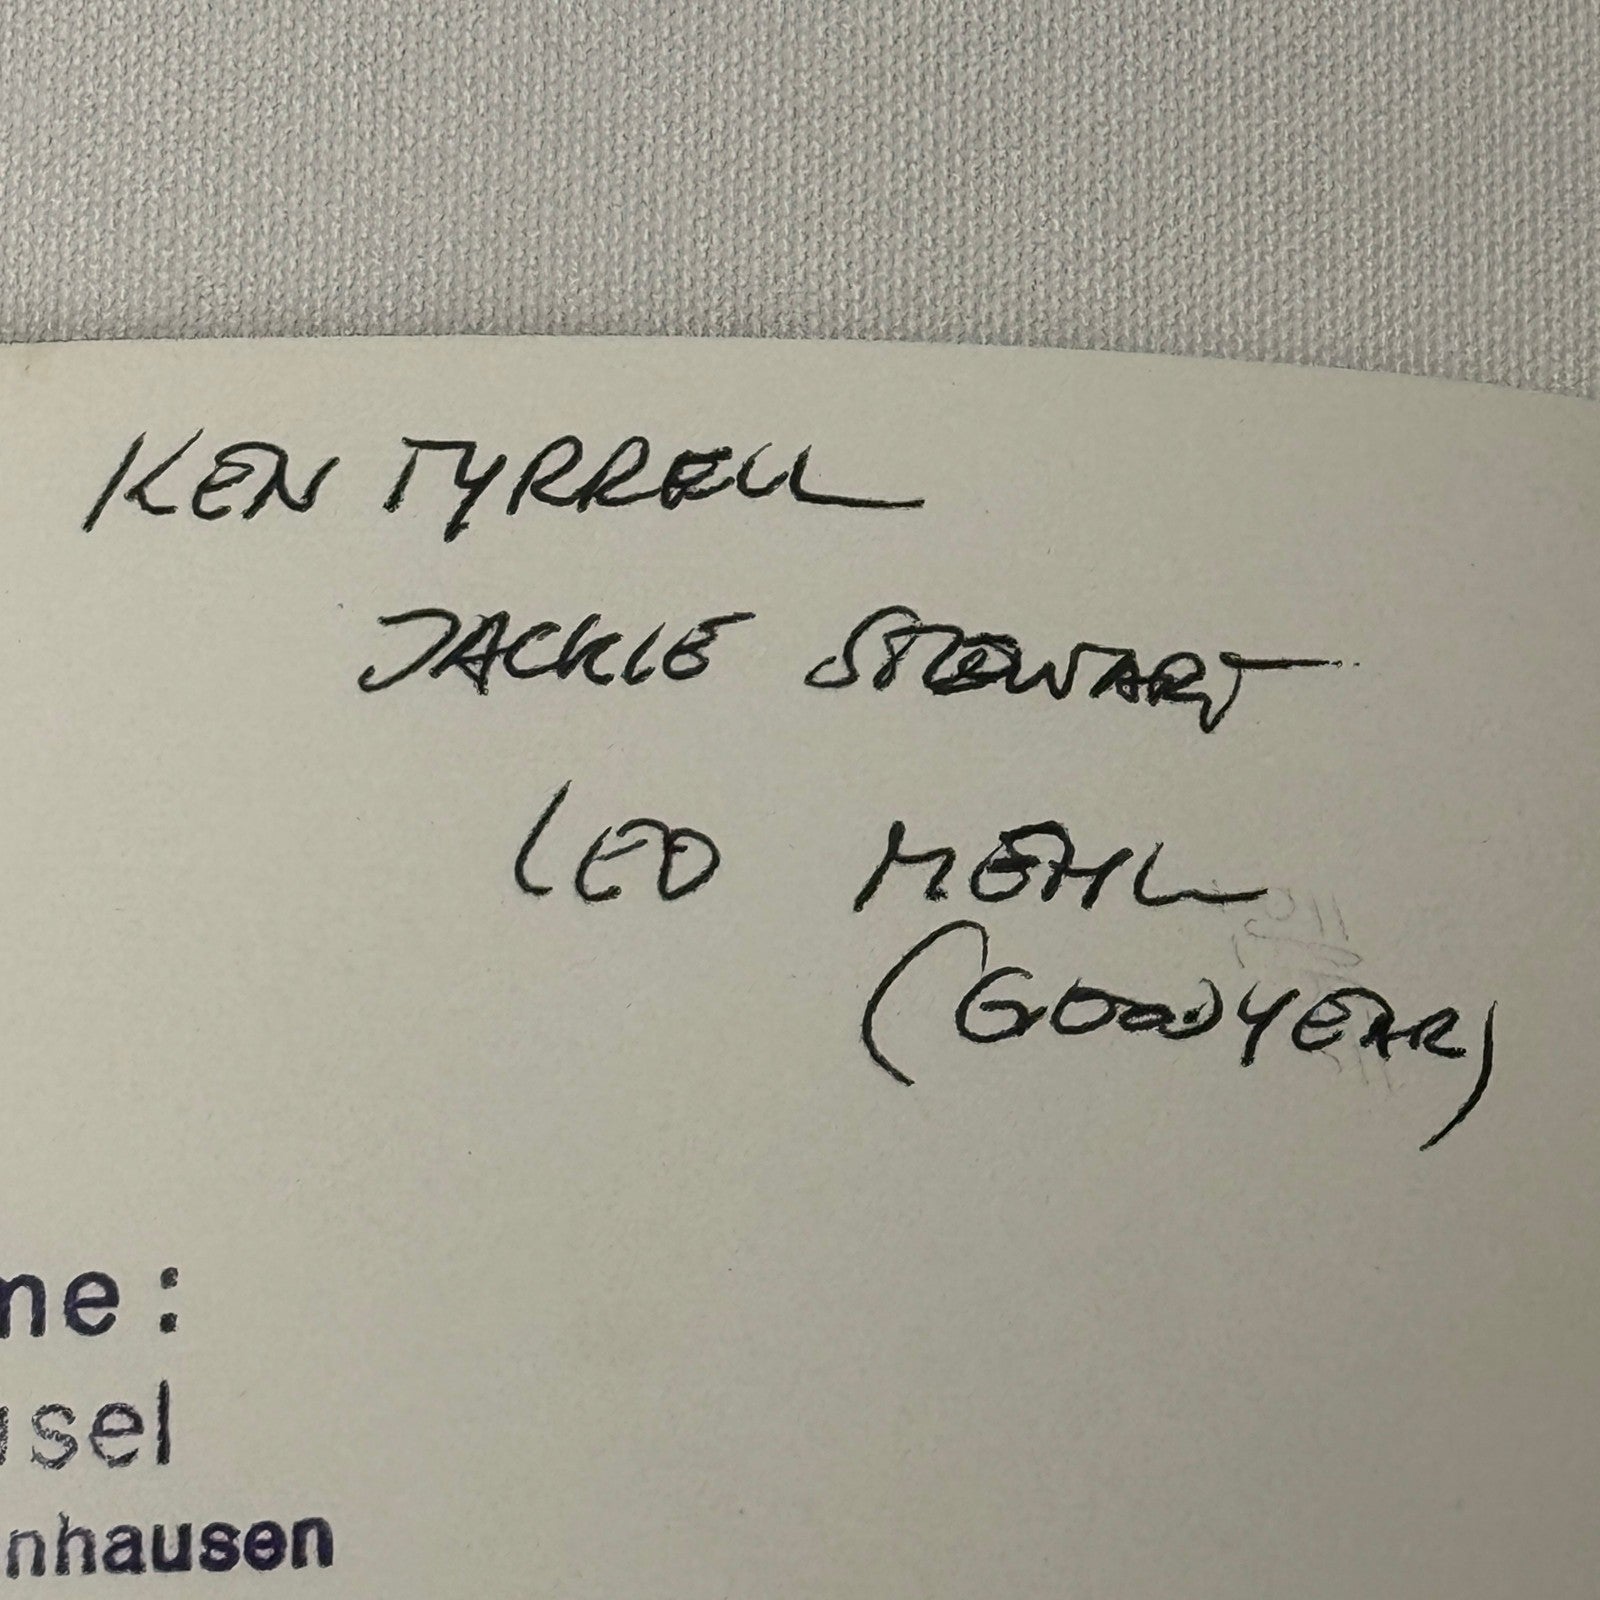 KEN TYRRELL
JACKIE STEWART
LEO MEHL
(GOODYEAR)
me:
usel
nhausen